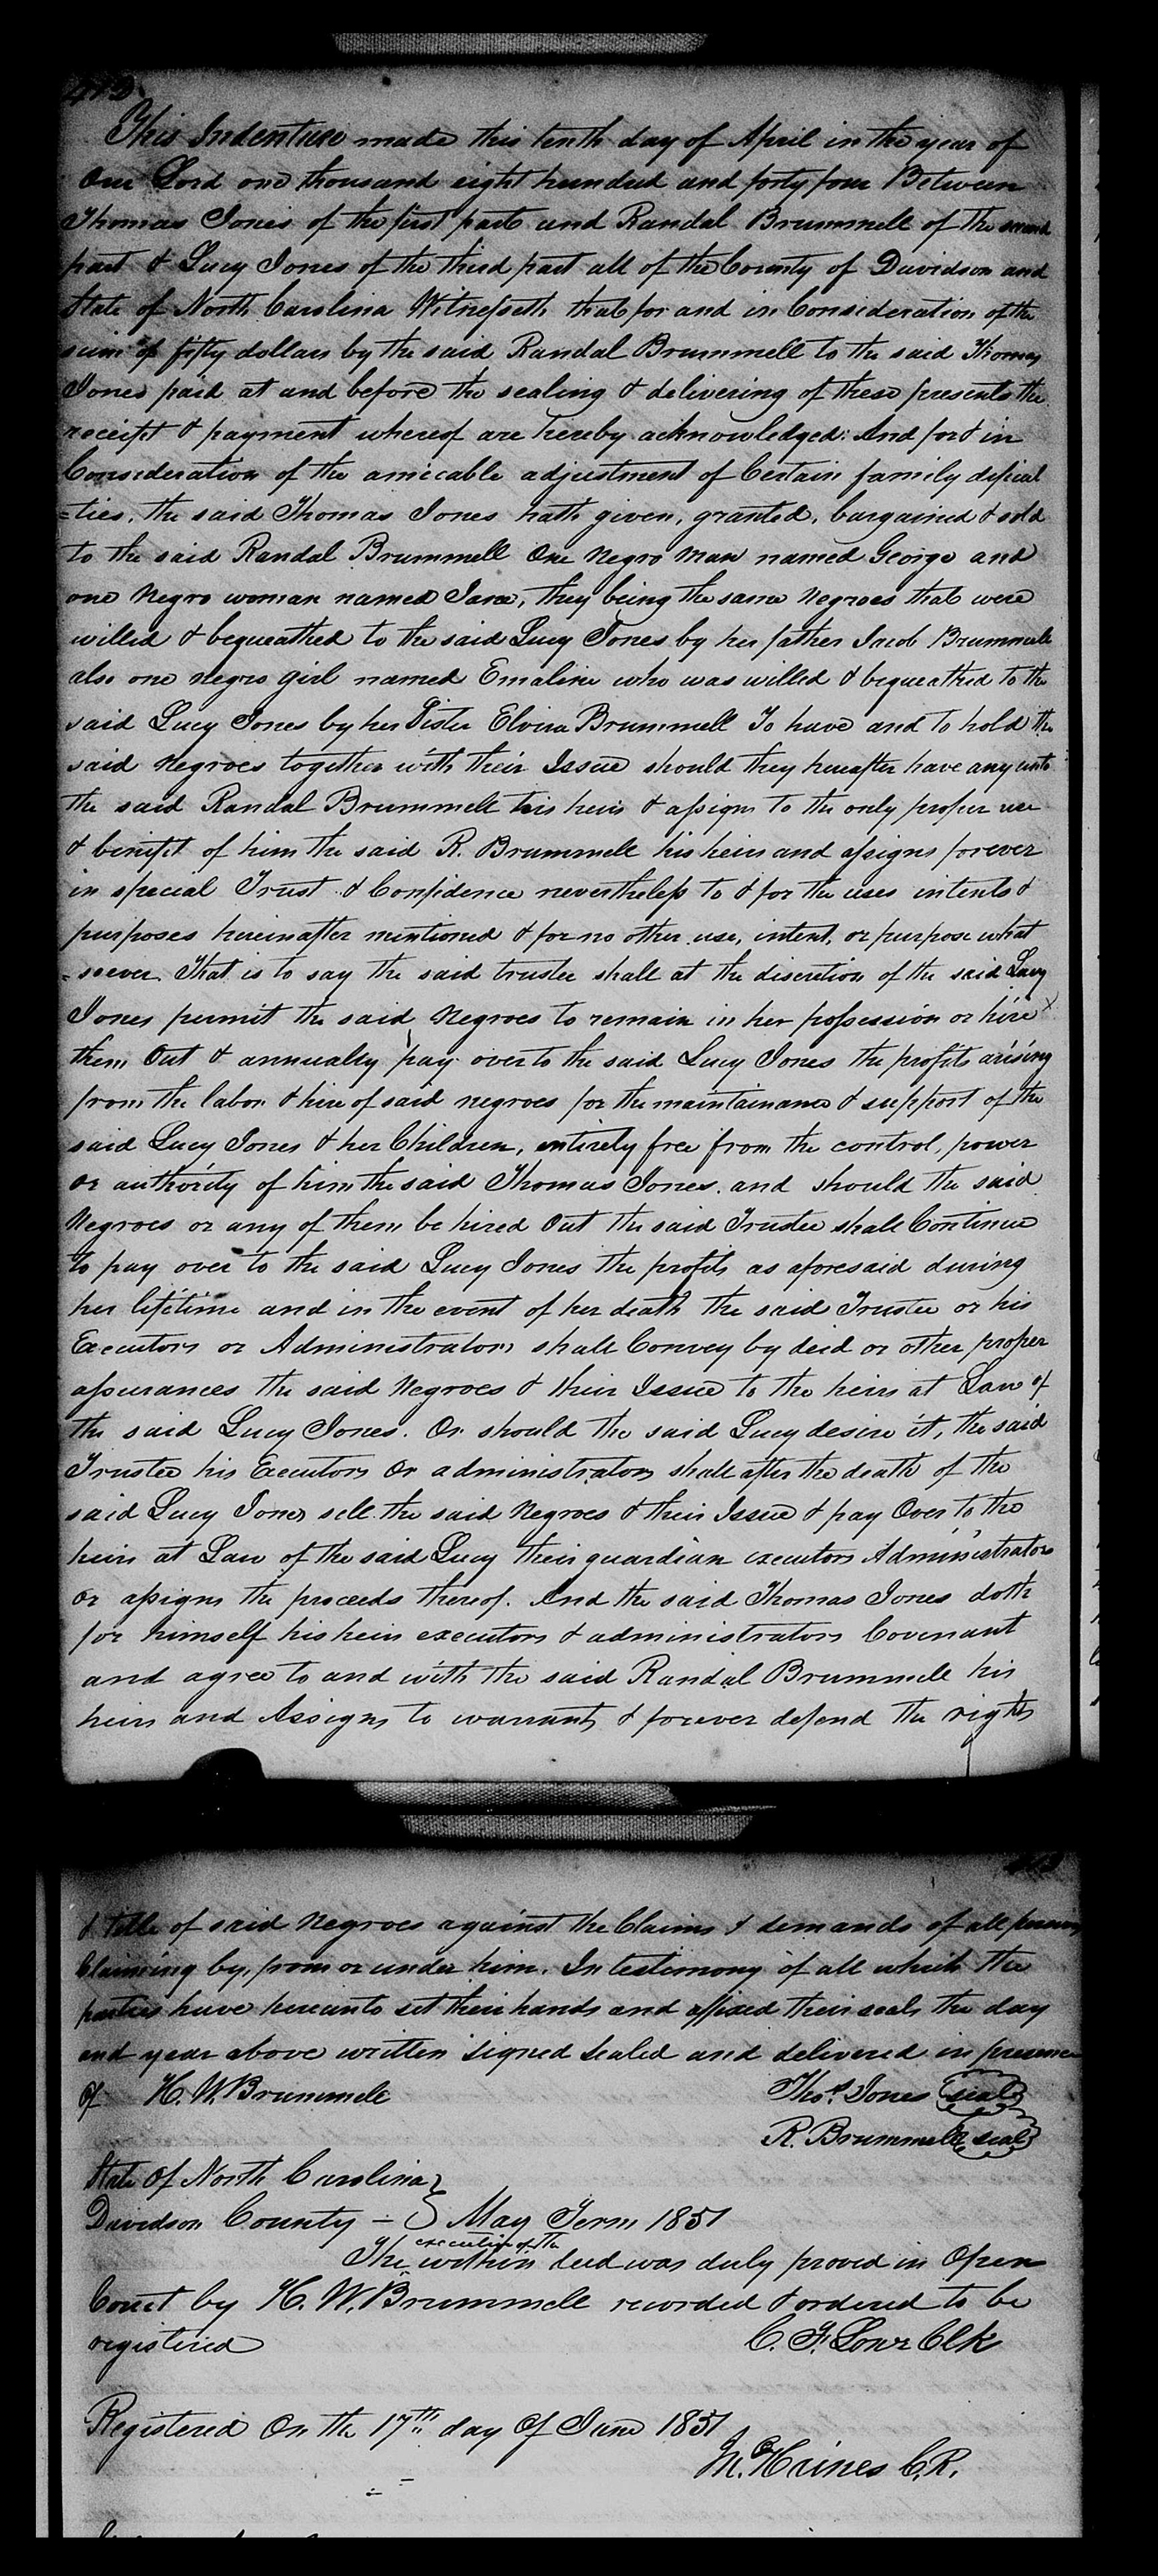 This Indenture made this tenth day of April in the year of
Our Lord one thousand eight hundred and forty four Between
Thomas Jones of the first part and Randal Brummell of the second
part & Lucy Jones of the third part all of the County of Davidson and
State of North Carolina Witnesseth that for and in Consideration of the
sum of fifty dollars by the said Randal Brummell to the said Thomas
Jones paid at and before the sealing & delivering of these presents the
receipt & payment whereof are hereby acknowledged: And for & in
Consideration of the amiccable adjustment of Certain family dificul
=ties, the said Thomas Jones hath given, granted, bargained & sold
to the said Randal Brummell One Negro Man named George and
one Negro woman named Jane, they being the same Negroes that were
willed & bequeathed to the said Lucy Jones by her father Jacob Brummell
also one negro girl named Emaline who was willed & bequeathed to the
said Lucy Jones by her Sister Elvira Brummell To have and to hold the
said Negroes together with their Issue should they hereafter have any unto
the said Randal Brummell his heirs & assigns to the only proper use
& benifit of him the said R. Brummell his heirs and assigns forever
in special Trust & Confidence nevertheless to & for the uses intents &
purposes hereinafter mentioned & for no other use, intent, or purpose what
=soever. That is to say the said trustee shall at the discretion of the said Lucy
Jones permit the said Negroes to remain in her possession or hire
them Out & annually pay over to the said Lucy Jones the profits arising
from the labor & hire of said negroes for the maintainance & support of the
said Lucy Jones & her Children, entirely free from the control, power
or authority of him the said Thomas Jones. and should the said
Negroes or any of them be hired Out the said Trustee shall Continue
to pay over to the said Lucy Jones the profits as aforesaid during
her lifetime and in the event of her death the said Trustee or his
Executors or Administrators shall Convey by deed or other proper
assurances the said Negroes & their Issue to the heirs at Law of
the said Lucy Jones. Or should the said Lucy desire it, the said
Trustee his Executors Or administrators shall after the death of the
said Lucy Jones sell the said Negroes & their Issue & pay Over to the
heirs at Law of the said Lucy their guardian executors Administrators
or assigns the proceeds thereof. And the said Thomas Jones doth
for himself his heirs executors & administrators Covenant
and agree to and with the said Randal Brummell his
heirs and Assigns to warrant & forever defend the rights
& title of said Negroes against the Claims & demands of all persons
Claiming by, from or under him. In testimony of all which the
parties have hereunto set their hands and affixed their seals the day
and year above written Signed Sealed and delivered in presence
Of H. W. Brummell Thos. Jones seal
R. Brummell seal
State Of North Carolina
Davidson County – } May Term 1851
The execution of the within deed was duly proved in Open
Court by H. W. Brummell recorded & ordered to be
registered C. F. Lowe Clk
Registered On the 17th day Of June 1851
M. Haines C.R.